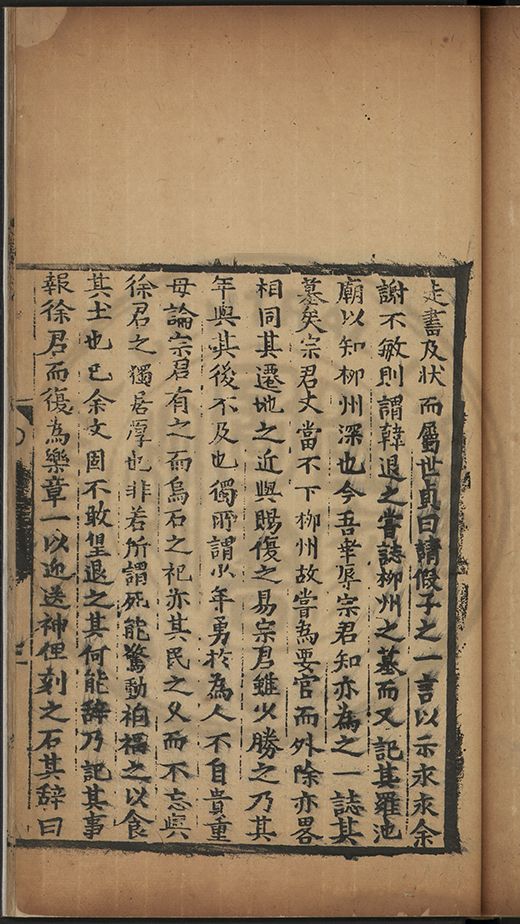 走書及狀而屬世貞曰請假子之一言以示永永余
謝不敏則謂韓退之嘗誌柳州之墓而又記其羅池
廟以知柳州深也今吾幸辱宗君知亦為之一誌其
墓矣宗君文當不下柳州故嘗為要官而外除亦畧
相同其遷地之近與賜復之易宗君雖少勝之乃其
年與其後不及也獨所謂少年勇於為人不自貴重
毋論宗君有之而烏石之祀亦其民之父而不忘與
徐君之獨居厚也非若所謂死能驚動禍福之以食
其土也已余文固不敢望退之其何能辭乃記其事
報徐君而復為樂章一以迎送神俚刻之石其辭曰